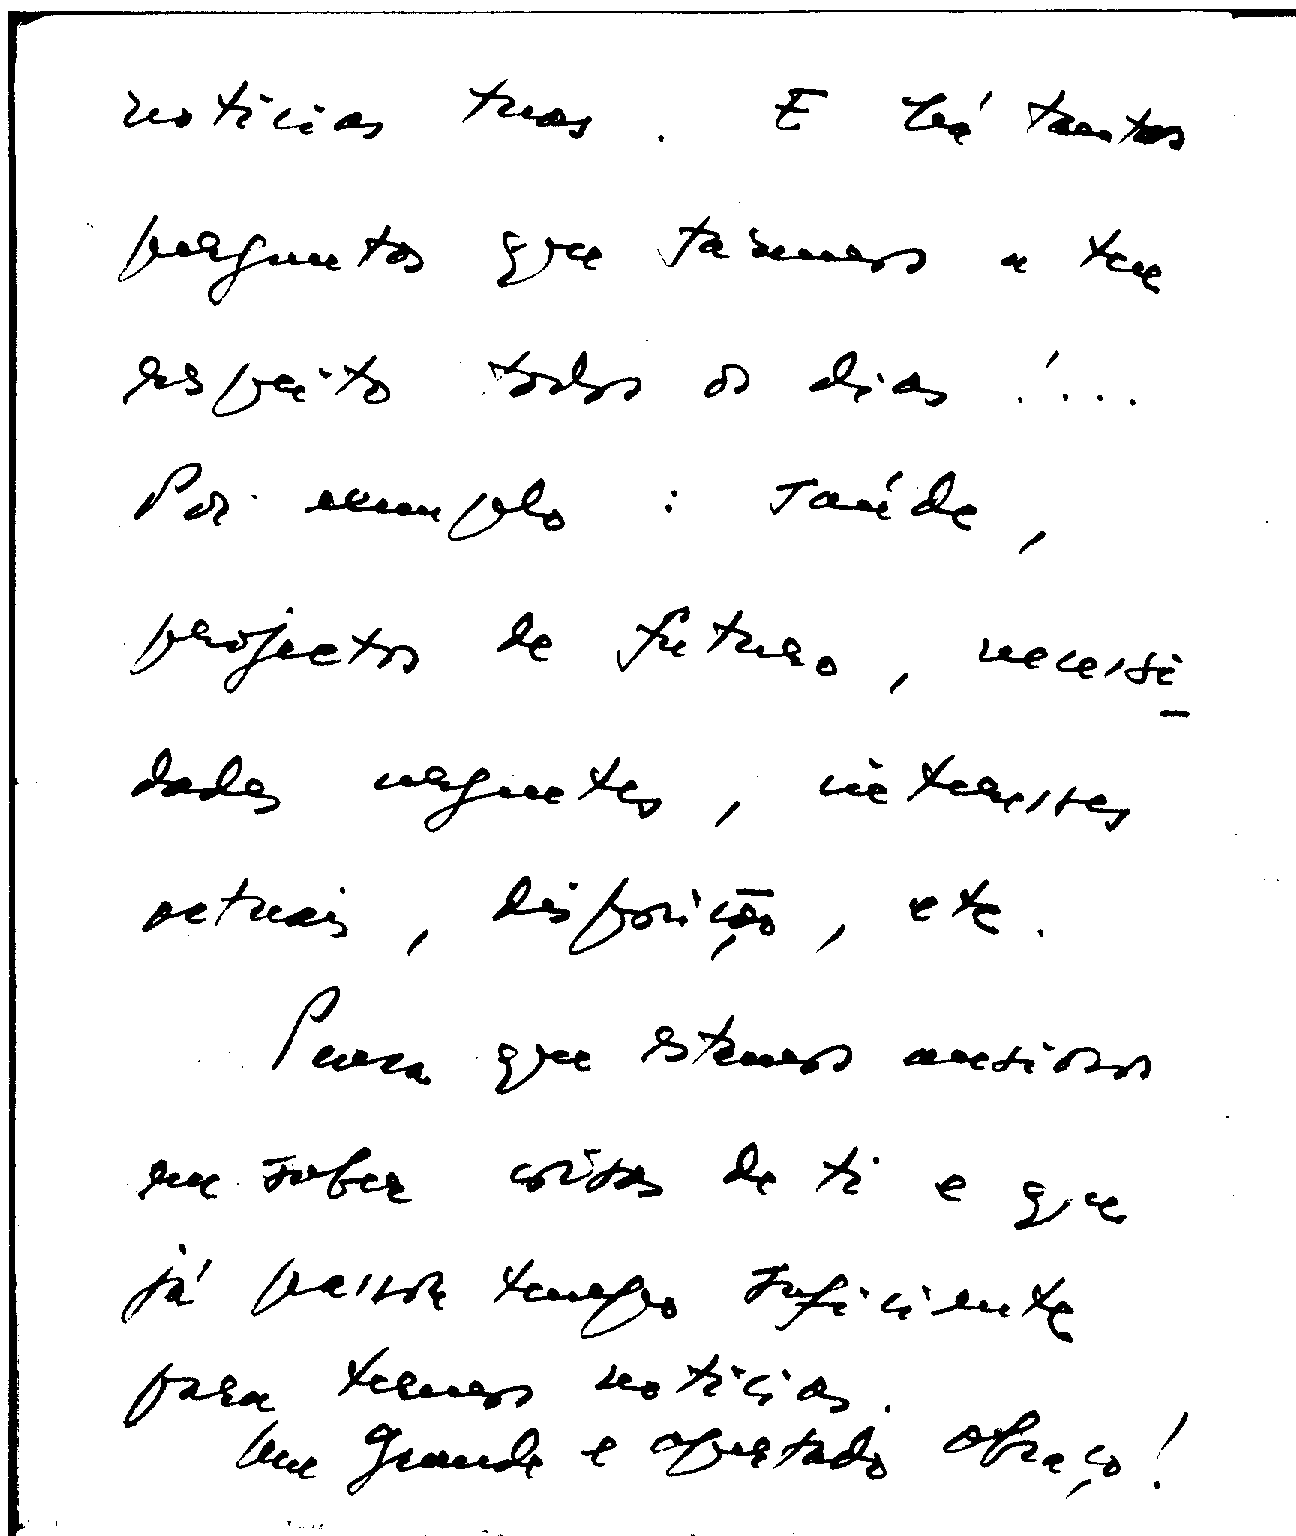 notícias tuas. E há tantas
perguntas que fazemos a teu
respeito todos os dias!...
Por exemplo: saúde,
projectos de futuro, necessi-
dades urgentes, interesses
actuais, disposição, etc.
Pensa que estamos ansiosos
em saber coisas de ti e que
já passou tempo suficiente
para termos notícias.
Um grande e apertado abraço!